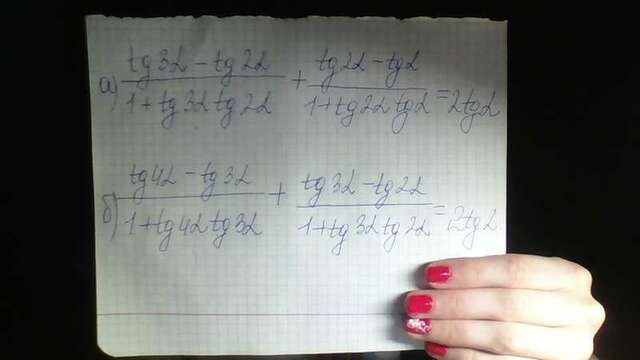 а) (tg3α - tg2α)/(1 + tg3α tg2α) + (tg2α - tgα)/(1 + tg2α tgα) = 2tgα
б) (tg4α - tg3α)/(1 + tg4α tg3α) + (tg3α - tg2α)/(1 + tg3α tg2α) = 2tgα